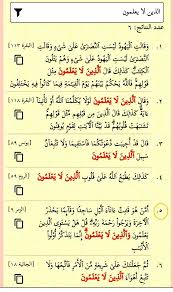 الذين لا يعلمون
عدد النتائج: ٦
١. وَقَالَتِ الْيَهُودُ لَيْسَتِ النَّصَارَىٰ عَلَىٰ شَيْءٍ وَقَالَتِ (البقرة ١١٣)
النَّصَارَىٰ لَيْسَتِ الْيَهُودُ عَلَىٰ شَيْءٍ وَهُمْ يَتْلُونَ
الْكِتَابَ كَذَٰلِكَ قَالَ الَّذِينَ لَا يَعْلَمُونَ مِثْلَ
قَوْلِهِمْ فَاللَّهُ يَحْكُمُ بَيْنَهُمْ يَوْمَ الْقِيَامَةِ فِيمَا كَانُوا فِيهِ يَخْتَلِفُونَ
٢. وَقَالَ الَّذِينَ لَا يَعْلَمُونَ لَوْلَا يُكَلِّمُنَا اللَّهُ أَوْ تَأْتِينَا (البقرة ١١٨)
آيَةٌ كَذَٰلِكَ قَالَ الَّذِينَ مِنْ قَبْلِهِمْ مِثْلَ قَوْلِهِمْ
تَشَابَهَتْ قُلُوبُهُمْ قَدْ بَيَّنَّا الْآيَاتِ لِقَوْمٍ يُوقِنُونَ
٣. قَالَ قَدْ أُجِيبَتْ دَعْوَتُكُمَا فَاسْتَقِيمَا وَلَا تَتَّبِعَانِّ (يونس ٨٩)
سَبِيلَ الَّذِينَ لَا يَعْلَمُونَ
٤. كَذَٰلِكَ يَطْبَعُ اللَّهُ عَلَىٰ قُلُوبِ الَّذِينَ لَا يَعْلَمُونَ (الروم ٥٩)
٥. أَمَّنْ هُوَ قَانِتٌ آنَاءَ اللَّيْلِ سَاجِدًا وَقَائِمًا يَحْذَرُ (الزمر ٩)
الْآخِرَةَ وَيَرْجُو رَحْمَةَ رَبِّهِ قُلْ هَلْ يَسْتَوِي الَّذِينَ
يَعْلَمُونَ وَالَّذِينَ لَا يَعْلَمُونَ إِنَّمَا يَتَذَكَّرُ أُولُو
الْأَلْبَابِ
٦. ثُمَّ جَعَلْنَاكَ عَلَىٰ شَرِيعَةٍ مِنَ الْأَمْرِ فَاتَّبِعْهَا وَلَا (الجاثية ١٨)
تَتَّبِعْ أَهْوَاءَ الَّذِينَ لَا يَعْلَمُونَ